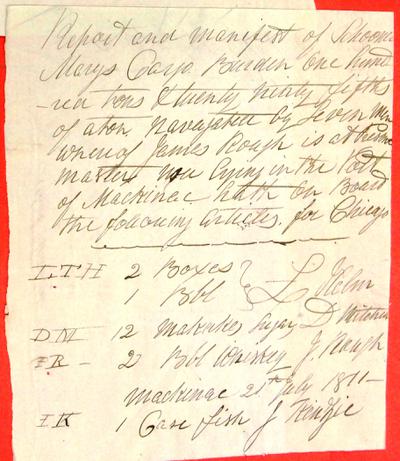 Report and manifest of Schooner
Marys Cargo. Burden One hund
-red tons & twenty ninty fifths
of a ton. Navigated by Seven Men
where of James Rough is at
master now lying in the Port
of Mackinac hath on Board
the following Articles. for Chicago
L T H 2 Boxes } L Helm
1 Bbl
D M 12 Makukes Sugar D Mitchell
I R - 2 Bbl Whiskey J. Rough
Mackinac 21st July 1811-
I K 1 Case fish J Kinzie